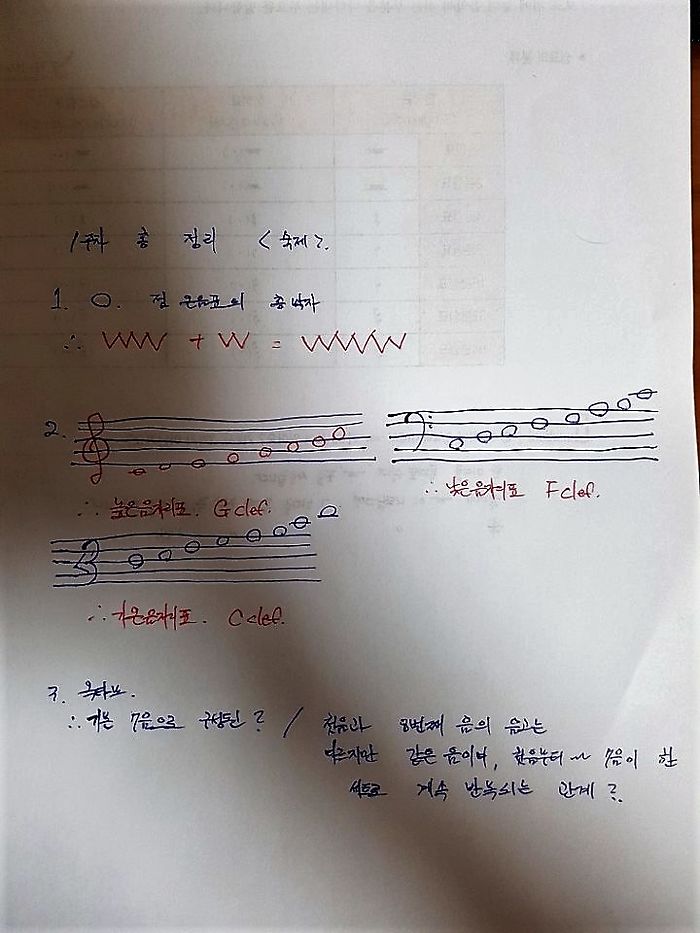 1주차 총 정리 <숙제>.
1. O. 점 온음표의 총 박자
∴ VVV + VV = VVVV
2.
∴ 높은음자리표. G clef.
∴ 낮은음자리표 F clef.
∴ 가온음자리표. C clef.
3. 옥타브.
∴ 기본 7음으로 구성된? / 첫음과 8번째 음의 음고는
다르지만 같은 음이며, 첫음부터 ~ 7음이 한
세트로 계속 반복되는 관계?